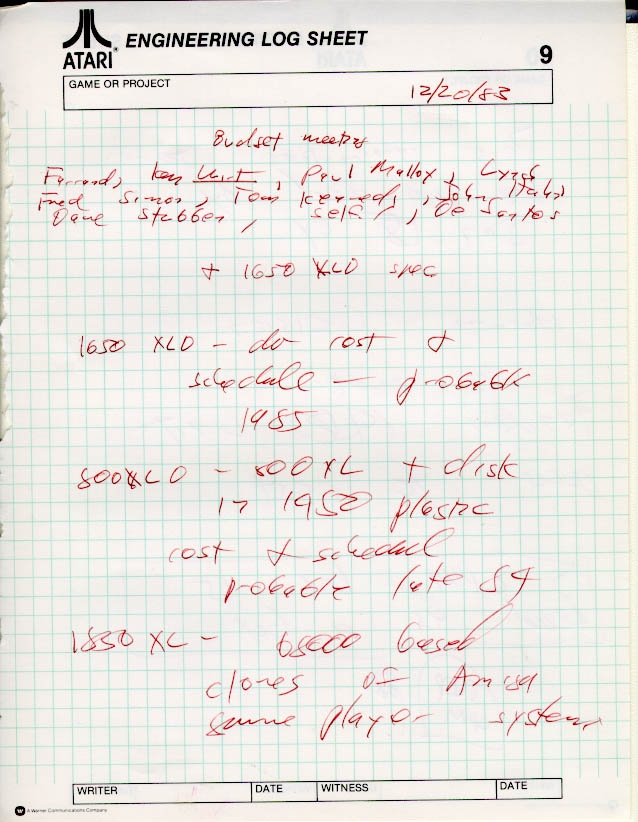 ATARI ® ENGINEERING LOG SHEET
9
GAME OR PROJECT
12/20/83
Budget meeting
Ferrand, Ken, Paul Mallox, Lynch
Fred Simon, Tom Kennedy, John
Dave Stubben, self, De Santos
+ 1650 XLD spec
1650 XLD - do cost +
schedule — probable
1985
800XLD - 800XL + disk
in 1450 plastic
cost + schedule
probable late 84
1850 XL - 68000 based
clones of Amiga
game player system
WRITER
DATE
WITNESS
DATE
W A Warner Communications Company